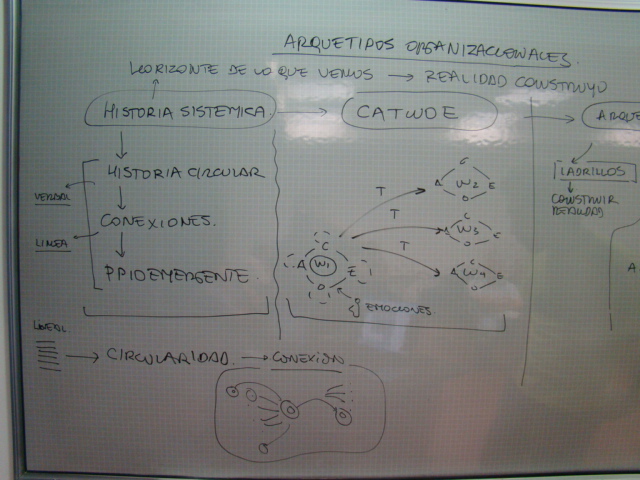 ARQUETIPOS ORGANIZACIONALES.
HORIZONTE DE LO QUE VEMOS → REALIDAD CONSTRUYO
HISTORIA SISTEMICA → CATWOE → ARQUE
HISTORIA CIRCULAR
VERBAL
CONEXIONES.
LINEA
PPIO EMERGENTE.
T
T
T
C
A W1 E
O
EMOCIONES.
C
A W2 E
O
C
A W3 E
O
C
A W4 E
O
LADRILLOS
CONSTRUIR
REALIDAD
A
LINEAL
→ CIRCULARIDAD. → CONEXION